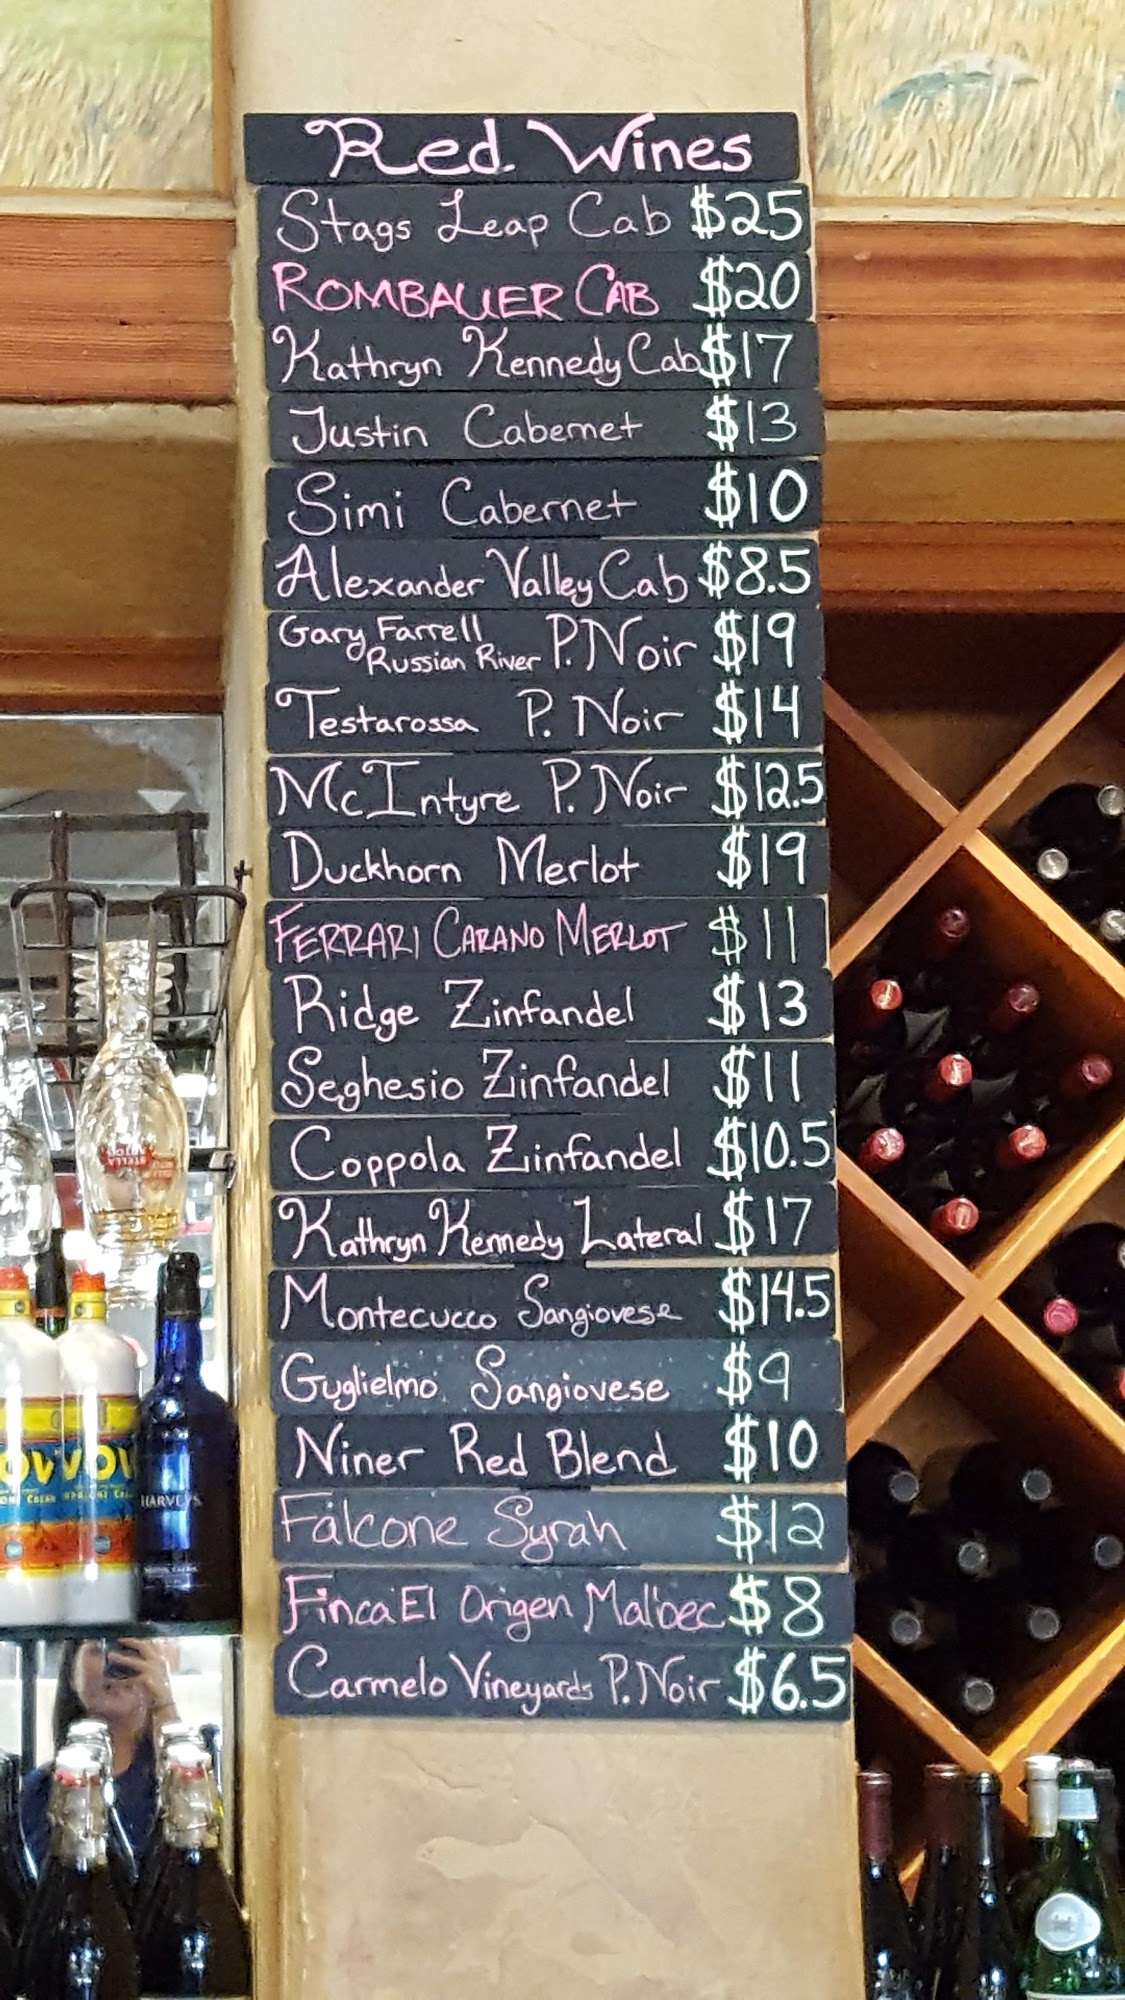 Red Wines
Stags Leap Cab $25
ROMBAUER CAB $20
Kathryn Kennedy Cab $17
Justin Cabernet $13
Simi Cabernet $10
Alexander Valley Cab $8.5
Gary Farrell Russian River P. Noir $19
Testarossa P. Noir $14
McIntyre P. Noir $12.5
Duckhorn Merlot $19
FERRARI CARANO MERLOT $11
Ridge Zinfandel $13
Seghesio Zinfandel $11
Coppola Zinfandel $10.5
Kathryn Kennedy Lateral $17
Montecucco Sangiovese $14.5
Guglielmo Sangiovese $9
Niner Red Blend $10
Falcone Syrah $12
Finca El Origen Malbec $8
Carmelo Vineyards P. Noir $6.5
STELLA ARTOIS
HARVEYS